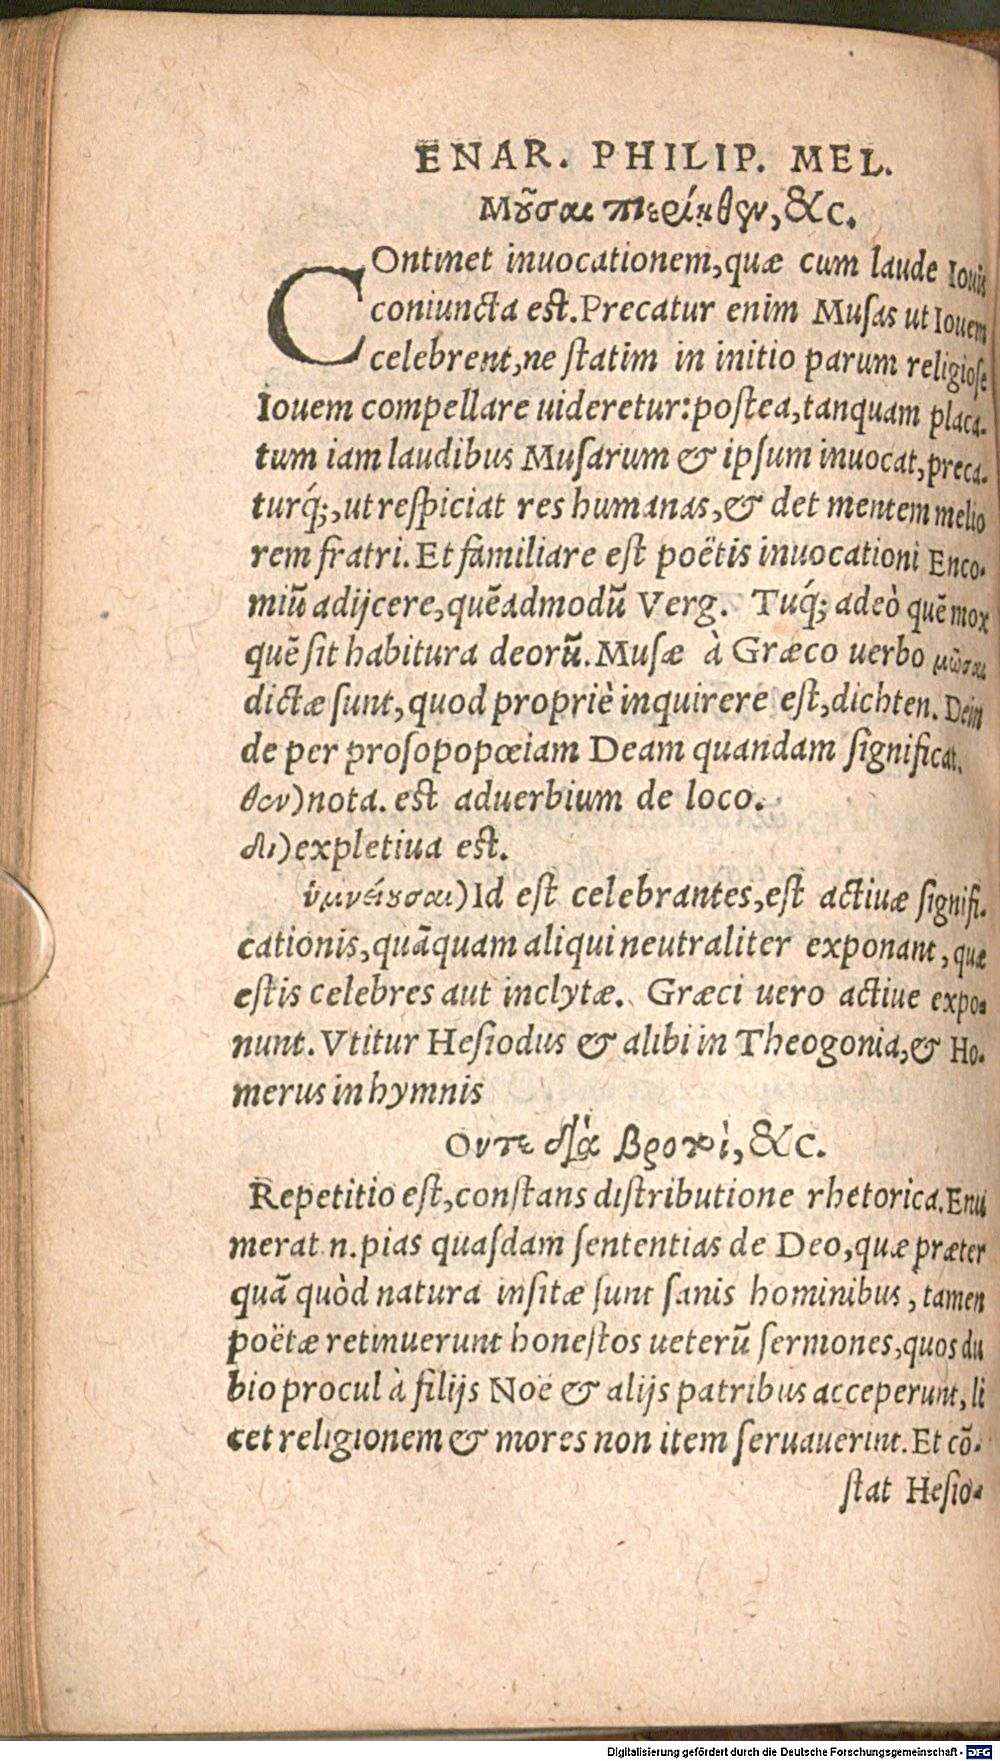 ENAR. PHILIP. MEL.
Μοῦσαι πιερίηθεν, &c.
COntinet inuocationem, quæ cum laude Iouis
coniuncta est. Precatur enim Musas ut Iouem
celebrent, ne statim in initio parum religiose
Iouem compellare uideretur: postea, tanquam placa-
tum iam laudibus Musarum & ipsum inuocat, preca-
turq́;, ut respiciat res humanas, & det mentem melio
rem fratri. Et familiare est poëtis inuocationi Enco-
miũ adijcere, quẽadmodũ Verg. Tuq́; adeò quẽ mox
quẽ sit habitura deorũ. Musæ à Græco uerbo μῶσαι
dictæ sunt, quod propriè inquirere est, dichten. Dein
de per prosopopœiam Deam quandam significat.
θεν) nota. est aduerbium de loco.
δὴ) expletiua est.
ὑμνείουσαι) Id est celebrantes, est actiuæ signifi-
cationis, quãquam aliqui neutraliter exponant, quæ
estis celebres aut inclytæ. Græci uero actiue expo-
nunt. Vtitur Hesiodus & alibi in Theogonia, & Ho-
merus in hymnis
Ουτε διὰ βροτοὶ, &c.
Repetitio est, constans distributione rhetorica. Enu
merat n. pias quasdam sententias de Deo, quæ præter
quã quòd natura insitæ sunt sanis hominibus, tamen
poëtæ retinuerunt honestos ueterũ sermones, quos du
bio procul à filijs Noë & alijs patribus acceperunt, li
cet religionem & mores non item seruauerint. Et cõ-
stat Hesio-
Digitalisierung gefördert durch die Deutsche Forschungsgemeinschaft - DFG